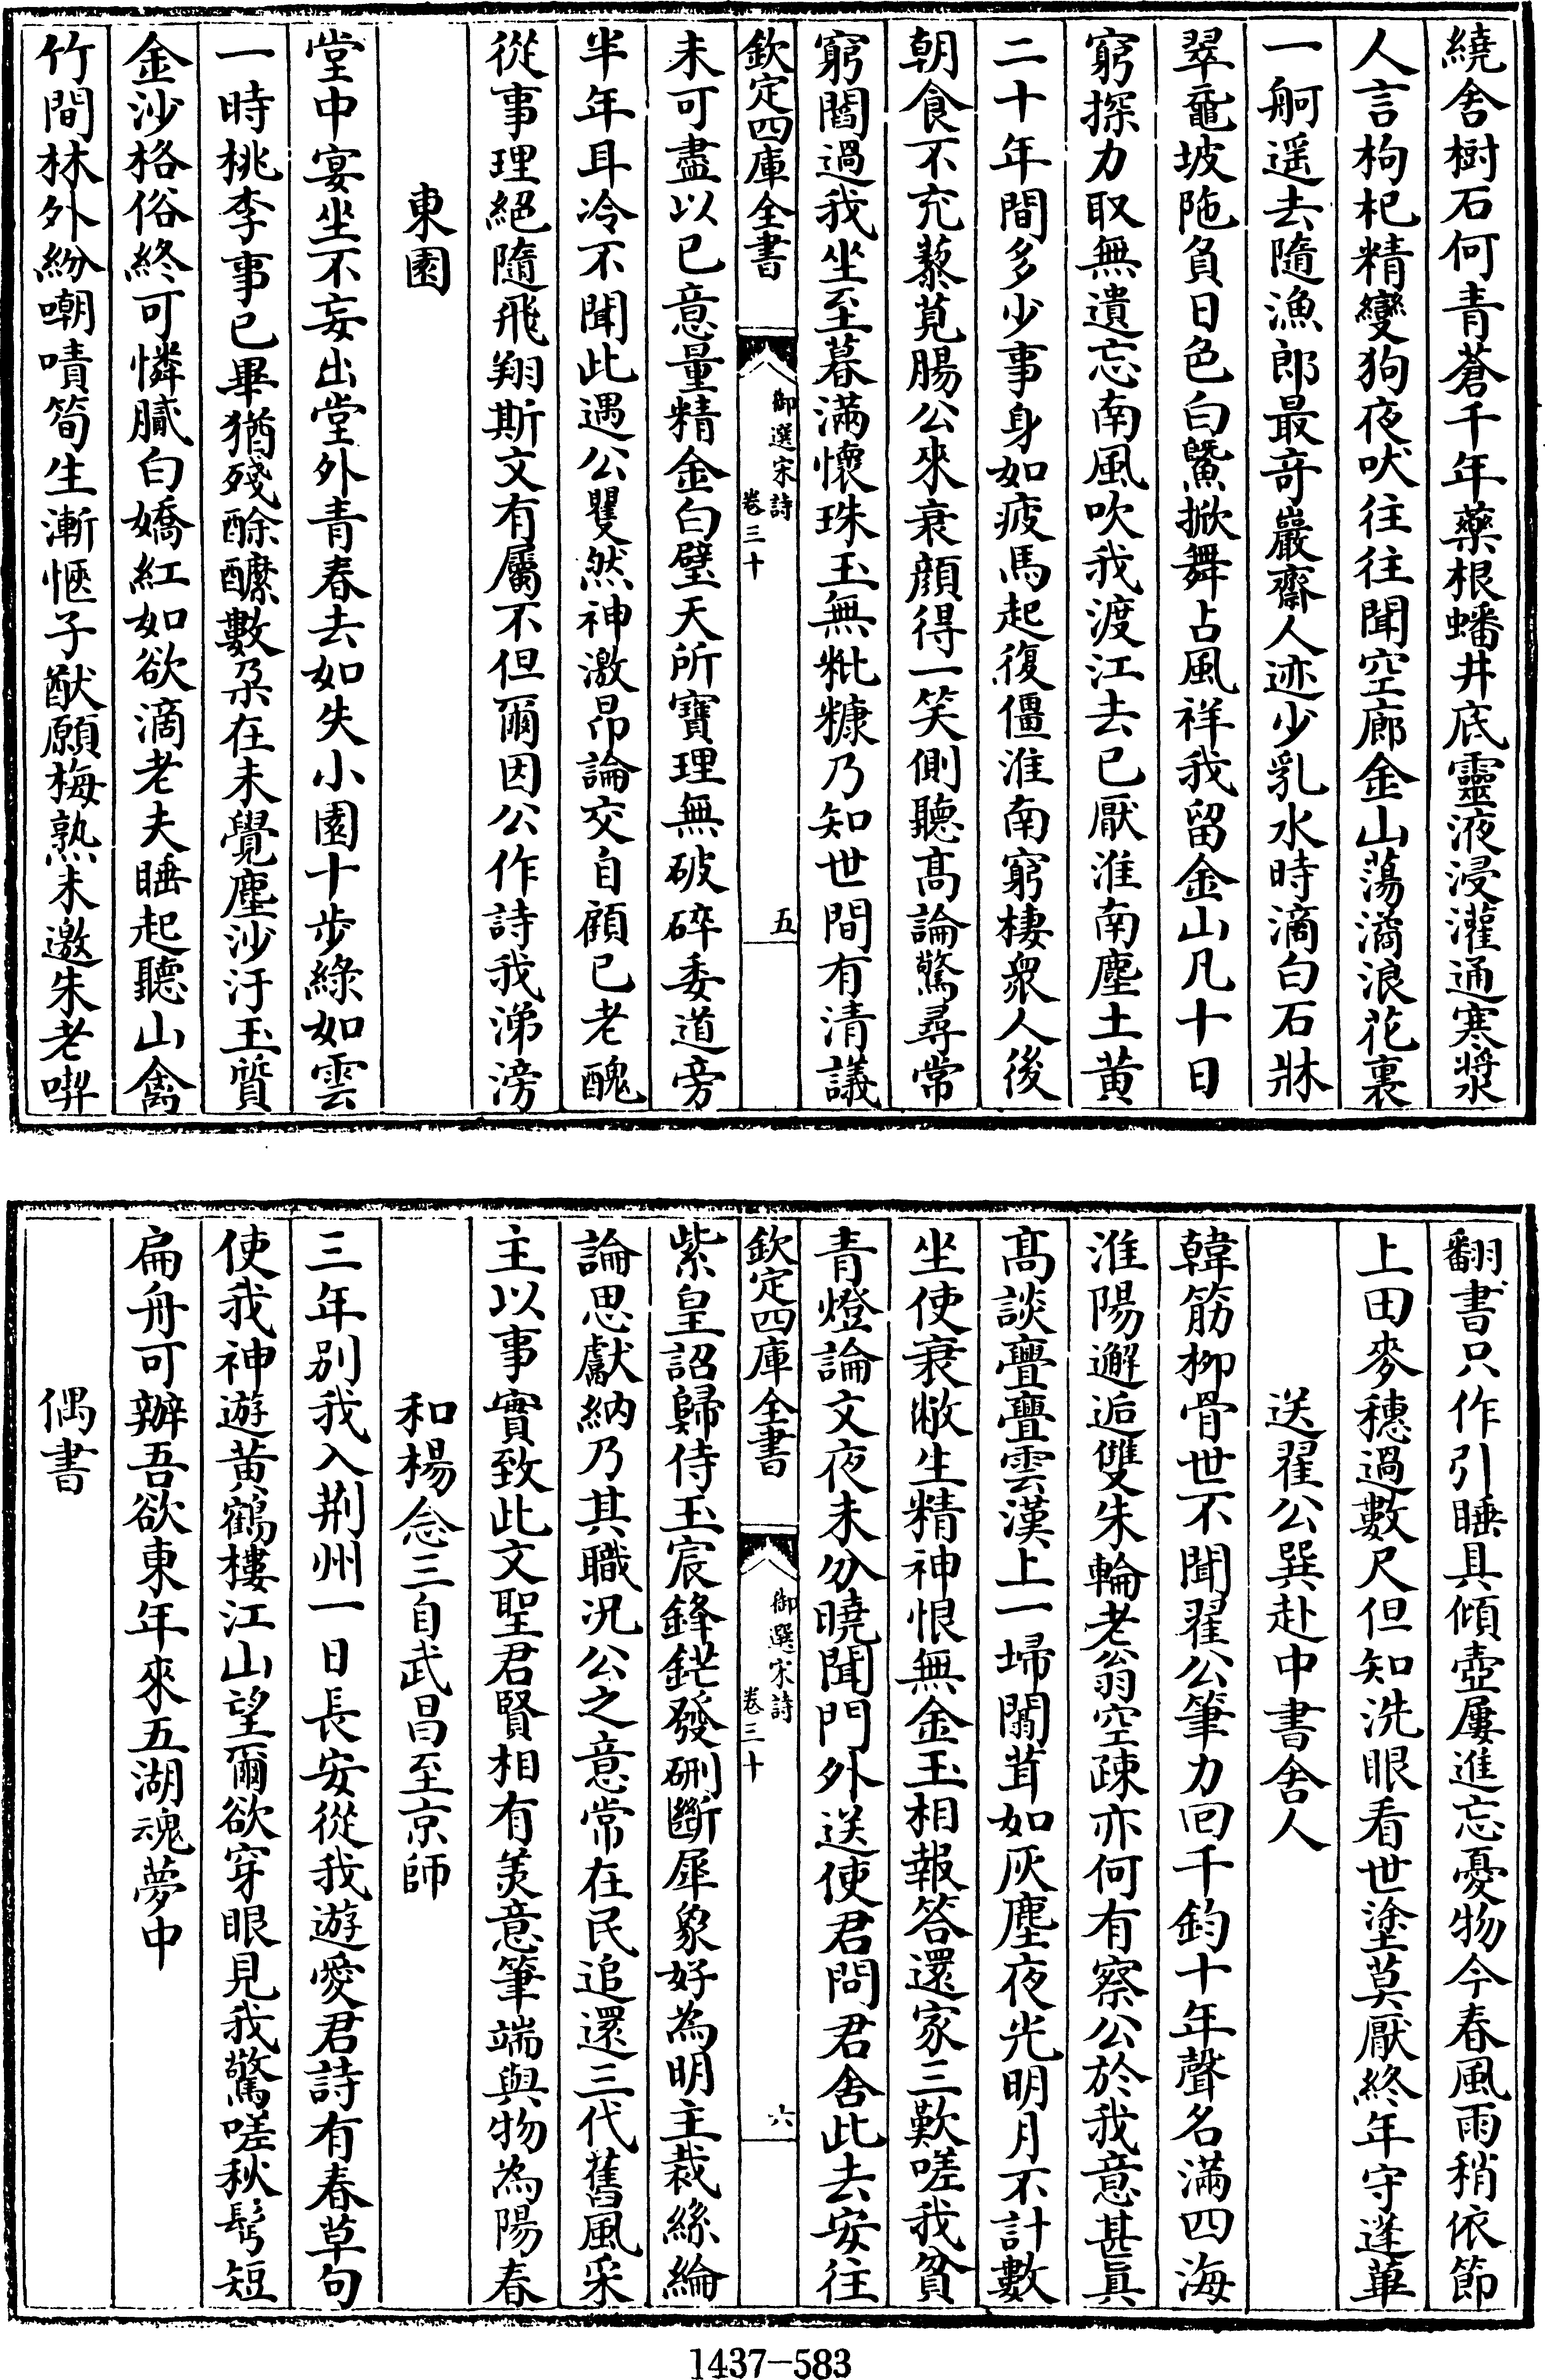 繞舍樹石何青蒼千年藥根蟠井底靈液浸灌通寒漿
人言枸杞精變狗夜吠往往聞空廊金山蕩潏浪花裏
一舸遥去隨漁郎最竒巖齋人迹少乳水時滴白石牀
翠黿坡陁負日色白鱀掀舞占風祥我留金山凡十日
窮探力取無遺忘南風吹我渡江去已厭淮南塵土黄
二十年間多少事身如疲馬起復僵淮南窮棲衆人後
朝食不充藜莧腸公來衰顔得一笑側聽髙論驚尋常
窮閻過我坐至暮滿懷珠玉無粃糠乃知世間有清議
欽定四庫全書
御選宋詩
卷三十
五
未可盡以已意量精金白璧天所寶理無破碎委道旁
半年耳冷不聞此遇公矍然神激昂論交自顧已老醜
從事理絕隨飛翔斯文有屬不但爾因公作詩我涕滂
東園
堂中宴坐不妄出堂外青春去如失小園十步綠如雲
一時桃李事已畢猶殘酴醾數朶在未覺塵沙汙玉質
金沙格俗終可憐膩白嬌紅如欲滴老夫睡起聽山禽
竹間林外紛嘲嘖筍生漸愜子猷願梅熟未邀朱老喫
翻書只作引睡具傾壺屢進忘憂物今春風雨稍依節
上田麥穗過數尺但知洗眼看世塗莫厭終年守蓬蓽
送翟公巽赴中書舍人
韓筋柳骨世不聞翟公筆力回千鈞十年聲名滿四海
淮陽邂逅雙朱輪老翁空疎亦何有察公於我意甚真
髙談亹亹雲漢上一埽闒茸如灰塵夜光明月不計數
坐使衰敝生精神恨無金玉相報答還家三歎嗟我貧
青燈論文夜未分曉聞門外送使君問君舍此去安往
欽定四庫全書
御選宋詩
卷三十
六
紫皇詔歸侍玉宸鋒鋩發硎斷犀象好為明主裁絲綸
論思獻納乃其職况公之意常在民追還三代舊風采
主以事實致此文聖君賢相有羙意筆端與物為陽春
和楊念三自武昌至京師
三年别我入荆州一日長安從我遊愛君詩有春草句
使我神遊黄鶴樓江山望爾欲穿眼見我驚嗟秋髩短
扁舟可辦吾欲東年來五湖魂夢中
偶書
1437-583